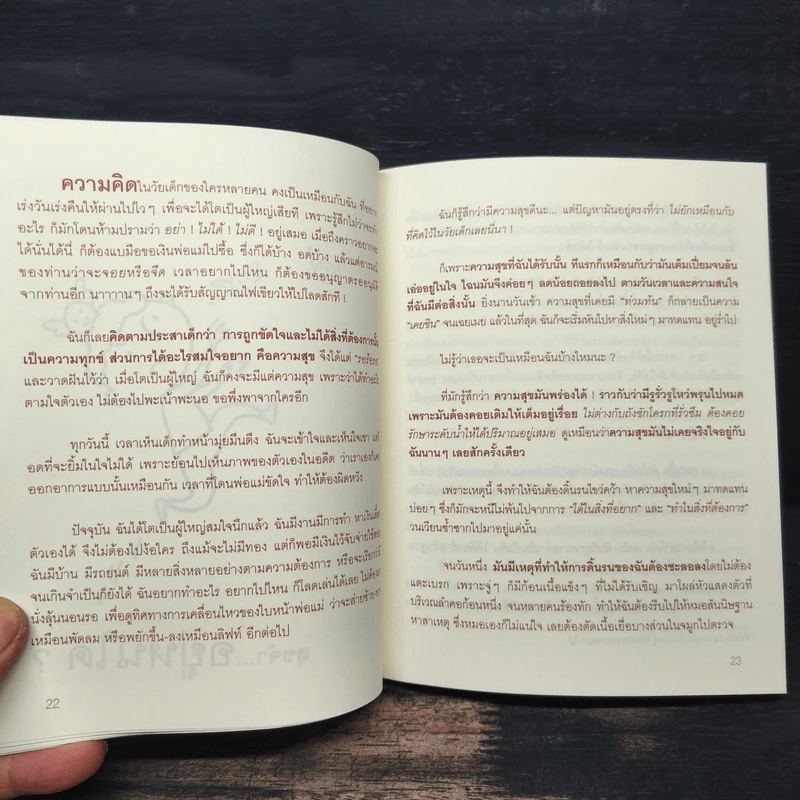 ความคิดในวัยเด็กของใครหลายคน คงเป็นเหมือนกับฉัน ที่อยาก
เร่งวันเร่งคืนให้ผ่านไปไวๆ เพื่อจะได้โตเป็นผู้ใหญ่เสียที เพราะรู้สึกไม่ว่าจะทำ
อะไร ก็มักโดนห้ามปรามว่า อย่า ! ไม่ได้ ! ไม่ดี ! อยู่เสมอ เมื่อถึงคราวอยากจะ
ได้นั่นได้นี่ ก็ต้องแบมือขอเงินพ่อแม่ไปซื้อ ซึ่งก็ได้บ้าง อดบ้าง แล้วแต่อารมณ์
ของท่านว่าจะจอยหรือจืด เวลาอยากไปไหน ก็ต้องขออนุญาตรออนุมัติ
จากท่านอีก นาาานๆ ถึงจะได้รับสัญญาณไฟเขียวให้ไปโลดสักที !
ฉันก็เลยคิดตามประสาเด็กว่า การถูกขัดใจและไม่ได้สิ่งที่ต้องการนั้น
เป็นความทุกข์ ส่วนการได้อะไรสมใจอยาก คือความสุข จึงได้แต่
และวาดฝันไว้ว่า เมื่อโตเป็นผู้ใหญ่ ฉันก็คงจะมีแต่ความสุข เพราะว่าได้ทำอะไร
ตามใจตัวเอง ไม่ต้องไปพะเน้าพะนอ ขอพึ่งพาจากใครอีก
ทุกวันนี้ เวลาเห็นเด็กทำหน้ามุ่ยมึนตึง ฉันจะเข้าใจและเห็นใจเขา แต่
อดที่จะยิ้มในใจไม่ได้ เพราะย้อนไปเห็นภาพของตัวเองในอดีต ว่าเราเองก็เคย
ออกอาการแบบนั้นเหมือนกัน เวลาที่โดนพ่อแม่ขัดใจ ทำให้ต้องผิดหวัง
ปัจจุบัน ฉันได้โตเป็นผู้ใหญ่สมใจนึกแล้ว ฉันมีงานมีการทำ หาเงินเลี้ยง
ตัวเองได้ จึงไม่ต้องไปง้อใคร ถึงแม้จะไม่มีทอง แต่ก็พอมีเงินไว้จับจ่ายใช้สอย
ฉันมีบ้าน มีรถยนต์ มีหลายสิ่งหลายอย่างตามความต้องการ หรือจะเรียกว่ามี
จนเกินจำเป็นก็ยังได้ ฉันอยากทำอะไร อยากไปไหน ก็โลดเล่นได้เลย ไม่ต้องมา
นั่งลุ้นนอนรอ เพื่อดูทิศทางการเคลื่อนไหวของใบหน้าพ่อแม่ ว่าจะส่ายซ้าย-ขวา
เหมือนพัดลม หรือพยักขึ้น-ลงเหมือนลิฟท์ อีกต่อไป
22
ฉันก็รู้สึกว่ามีความสุขดีนะ... แต่ปัญหามันอยู่ตรงที่ว่า ไม่ยักเหมือนกับ
ที่คิดไว้ในวัยเด็กเลยนี่นา !
ก็เพราะความสุขที่ฉันได้รับนั้น ทีแรกก็เหมือนกับว่ามันเต็มเปี่ยมจนล้น
เอ่ออยู่ในใจ ไฉนมันจึงค่อยๆ ลดน้อยถอยลงไป ตามวันเวลาและความสนใจ
ที่ฉันมีต่อสิ่งนั้น ยิ่งนานวันเข้า ความสุขที่เคยมี “ท่วมท้น” ก็กลายเป็นความ
“เคยชิน” จนเฉยเมย แล้วในที่สุด ฉันก็จะเริ่มหันไปหาสิ่งใหม่ๆ มาทดแทน อยู่ร่ำไป
ไม่รู้ว่าเธอจะเป็นเหมือนฉันบ้างไหมนะ ?
ที่มักรู้สึกว่า ความสุขมันพร่องได้ ! ราวกับว่ามีรูรั่วรูโหว่พรุนไปหมด
เพราะมันต้องคอยเติมให้เต็มอยู่เรื่อย ไม่ต่างกับถังชักโครกที่รั่วซึม ต้องคอย
รักษาระดับน้ำให้ได้ปริมาณอยู่เสมอ ดูเหมือนว่าความสุขมันไม่เคยจริงใจอยู่กับ
ฉันนานๆ เลยสักครั้งเดียว
เพราะเหตุนี้ จึงทำให้ฉันต้องดิ้นรนไขว่คว้า หาความสุขใหม่ๆ มาทดแทน
บ่อยๆ ซึ่งก็มักจะหนีไม่พ้นไปจากการ “ได้ในสิ่งที่อยาก” และ “ทำในสิ่งที่ต้องการ”
วนเวียนซ้ำซากไปมาอยู่แค่นั้น
จนวันหนึ่ง มันมีเหตุที่ทำให้การดิ้นรนของฉันต้องชะลอลงโดยไม่ต้อง
แตะเบรก เพราะจู่ๆ ก็มีก้อนเนื้อแข็งๆ ที่ไม่ได้รับเชิญ มาโผล่หัวแสดงตัวที่
บริเวณลำคอก้อนหนึ่ง จนหลายคนร้องทัก ทำให้ฉันต้องรีบไปให้หมอสันนิษฐาน
หาสาเหตุ ซึ่งหมอเองก็ไม่แน่ใจ เลยต้องตัดเนื้อเยื่อบางส่วนในจมูกไปตรวจ
23